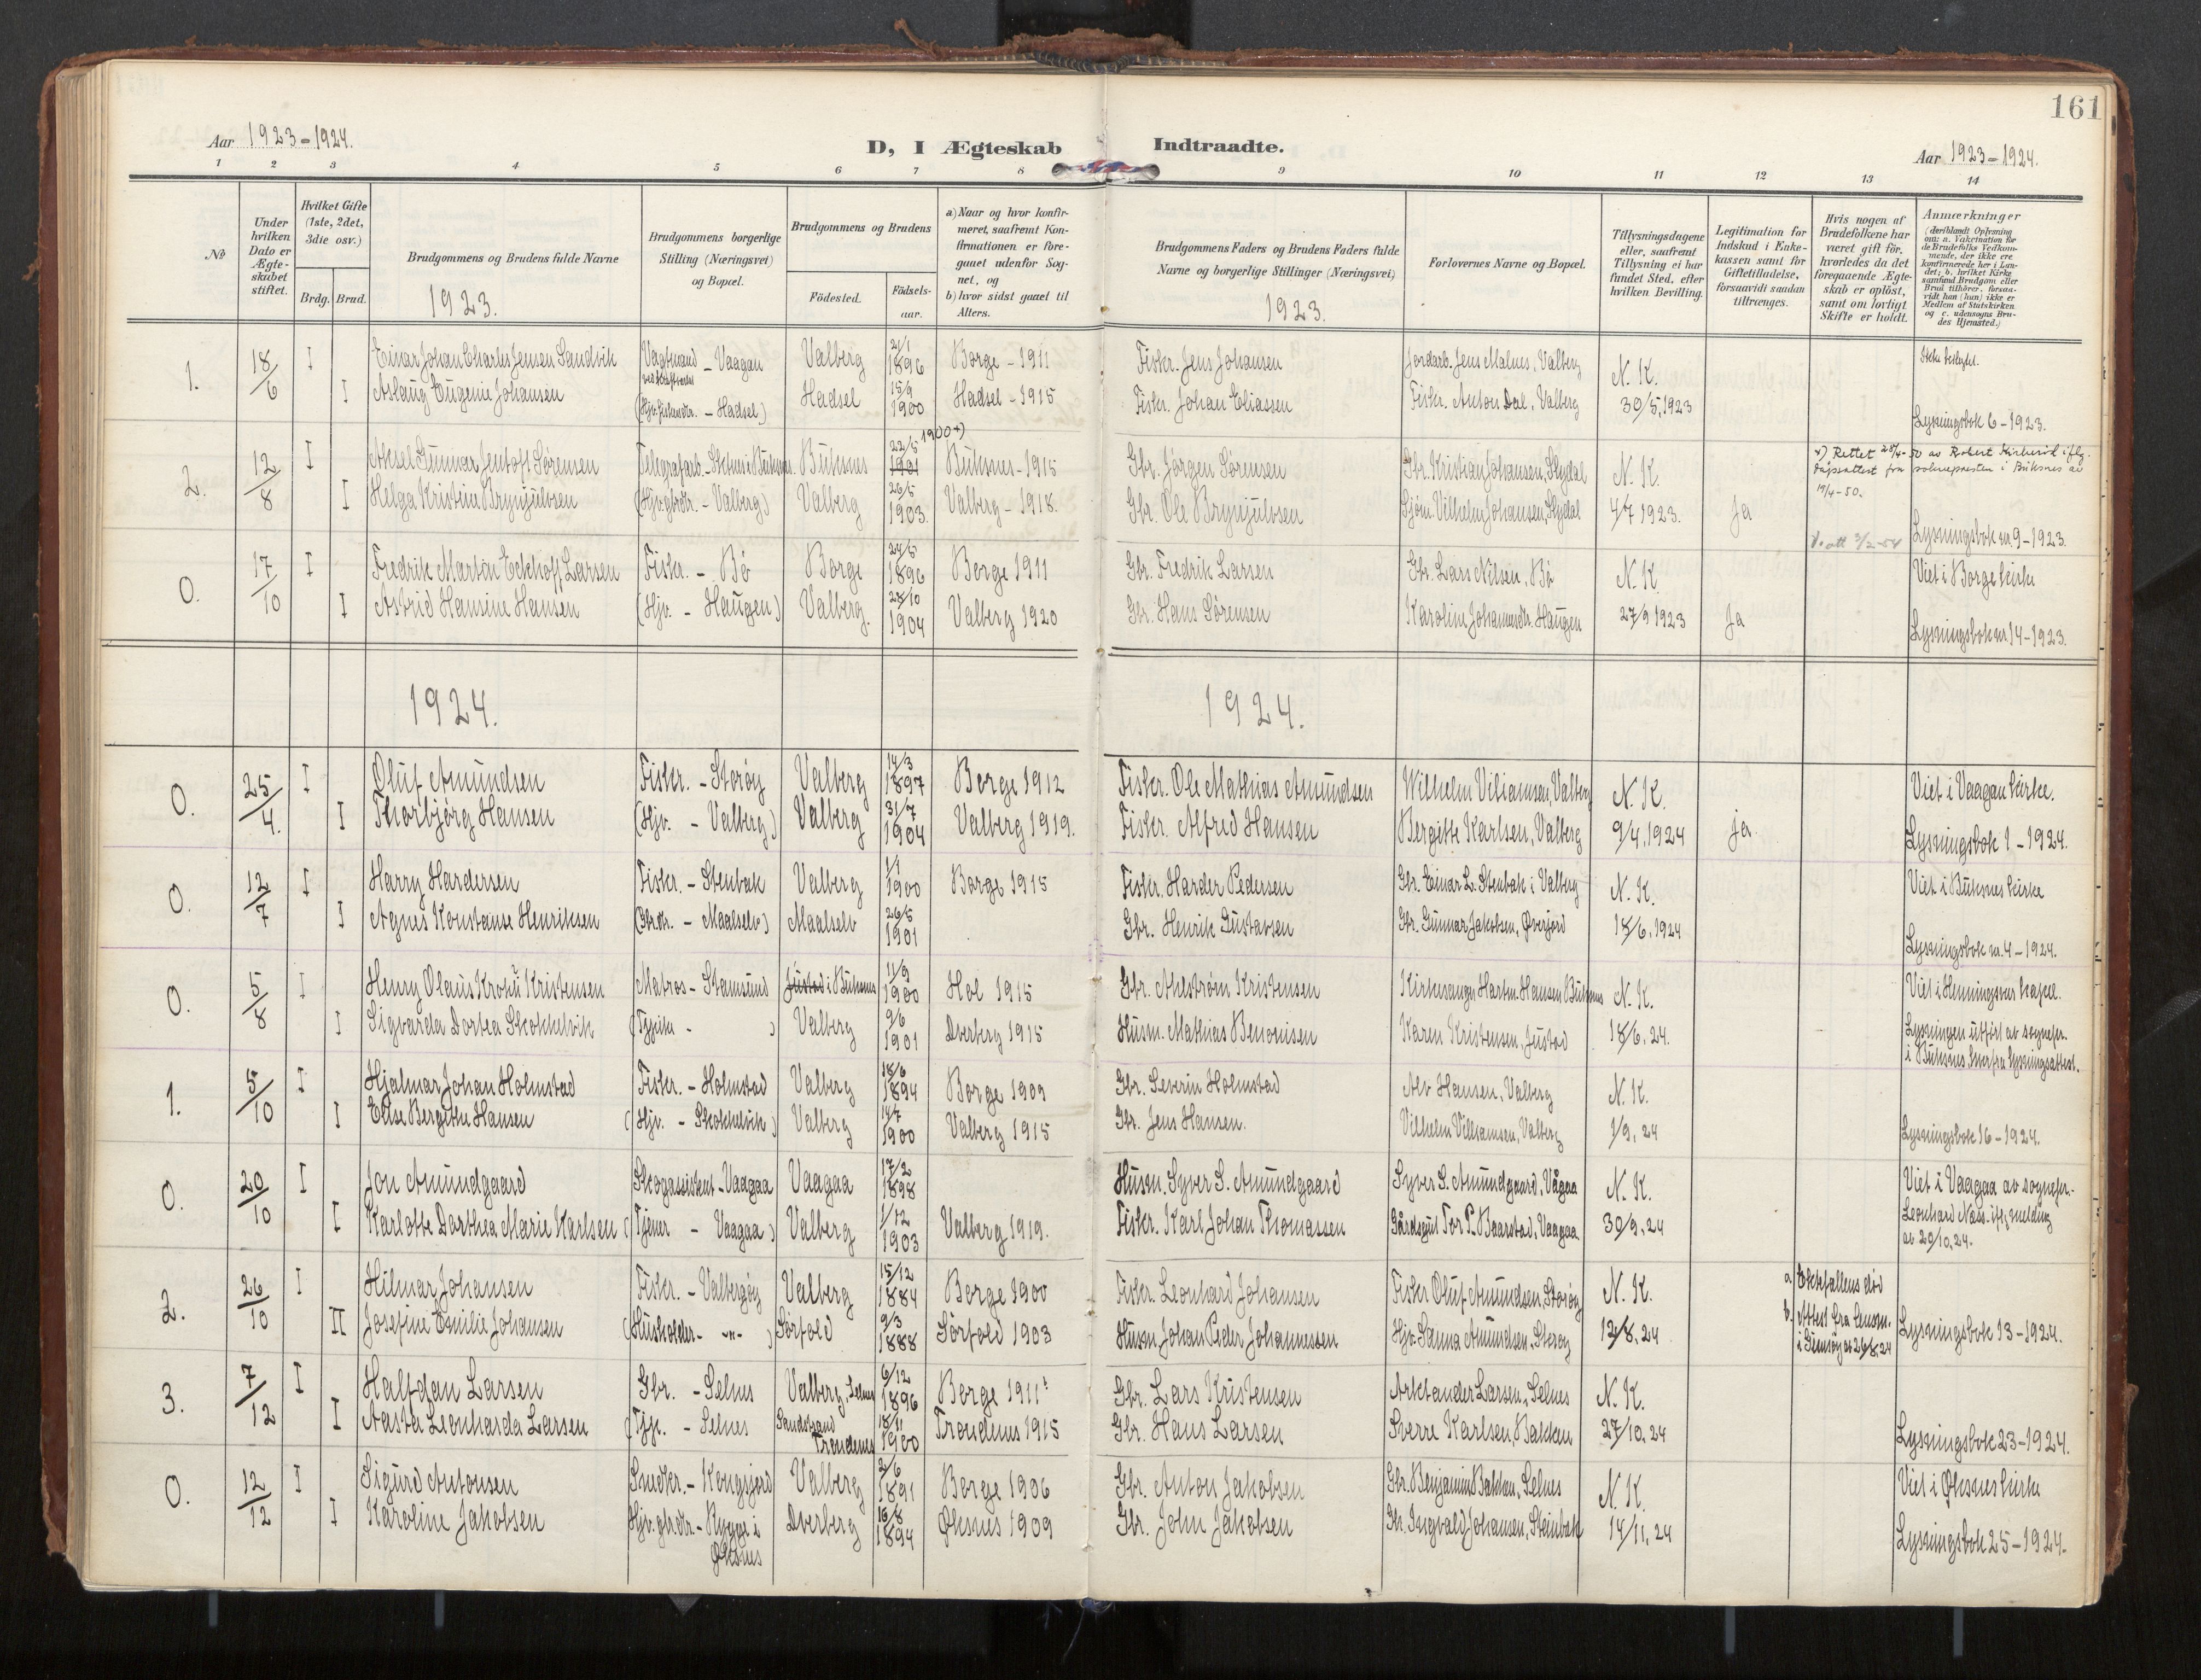 161
Aar 1923-1924.
D, I Ægteskab Indtraadte.
Aar 1923-1924.
1 2 3 4 5 6 7 8 9 10 11 12 13 14
№
Under hvilken Dato er Ægteskabet stiftet.
Hvilket Gifte (1ste, 2det, 3die osv.)
Brdg. Brud.
Brudgommens og Brudens fulde Navne
Brudgommens borgerlige Stilling (Næringsvei) og Bopæl.
Brudgommens og Brudens
Födested. Födselsaar.
a) Naar og hvor konfirmeret, saafremt Konfirmationen er foregaaet udenfor Sognet, og
b) hvor sidst gaaet til Alters.
Brudgommens Faders og Brudens Faders fulde Navne og borgerlige Stillinger (Næringsvei)
Forlovernes Navne og Bopæl.
Tillysningsdagene eller, saafremt Tillysning ei har fundet Sted, efter hvilken Bevilling.
Legitimation for Indskud i Enkekassen samt for Giftetilladelse, forsaavidt saadan tiltrænges.
Hvis nogen af Brudefolkene har været gift för, hvorledes da det foregaaende Ægteskab er oplöst, samt om lovligt Skifte er holdt.
Anmærkninger (deriblandt Oplysning om: a. Vakcination for de Brudefolks Vedkommende, der ikke ere konfirmerede her i Landet; b. hvilket Kirkesamfund Brudgom eller Brud tilhörer, forsaavidt han (hun) ikke er Medlem af Statskirken og c. udensogns Brudes Hjemsted.)
1923. 1923.
1. 18/6 I Einar Johan Charles Jensen Sandvik Vagtmand - Vaagan Valberg 21/1 1896 Borge - 1911 Fiskr. Jens Johansen Jordarb. Jens Malnes, Valberg N. K.
I Aslaug Eugenie Johansen (Hjv. Fiskerdtr. - Hadsel) Hadsel 15/9 1900 Hadsel - 1915 Fiskr. Johan Eliassen Fiskr. Anton Dal, Valberg 30/5, 1923 Lysningsbok 6 - 1923.
2. 12/8 I Aksel Gunnar Jentoft Sørensen Buksnes 22/5 1901 1900 +) Buksnes - 1915 Gbr. Jørgen Sørensen Gbr. Kristian Johansen, Slydal N. K. +) Rettet 20/4-50 av Robert ifly. dåpsattest fra soknepresten i Buksnes av 19/4-50.
I Helga Kristine Brynjulvsen (Hjv. gbrdtr. - Valberg) Valberg 26/5 1903. Valberg - 1918. Gbr. Ole Brynjulvsen Sjøm. Vilhelm Johansen, Slydal 4/7 1923. Ja Lysningsbok nr. 9 - 1923.
0. 17/10 I Fredrik Martin Eckhoff Larsen Fiskr. - Bø Borge 24/5 1896 Borge 1911 Gbr. Fredrik Larsen Gbr. Lars Nilsen, Bø N. K. V. att 3/2-54 Viet i Borge kirke
I Astrid Hansine Hansen (Hjv. - Haugen) Valberg. 28/10 1904 Valberg 1920 Gbr. Hans Sørensen Karolin Johannesdtr. Haugen 27/9 1923 Ja Lysningsbok nr 14 - 1923.
1924. 1924.
0. 25/4. I Oluf Amundsen Fiskr. - Storøy Valberg 14/3 1897 Borge 1912 Fiskr. Ole Mathias Amundsen Wilhelm Viliamsen, Valberg N. K. Viet i Vaagan kirke.
I Thorbjørg Hansen (Hjv. - Valberg) Valberg 31/7 1904 Valberg 1919. Fiskr. Alfred Hansen Bergitte Karlsen, Valberg 9/4, 1924 ja Lysningsbok 1 - 1924.
0. 12/7 I Harry Hardersen Fiskr. - Stenbak Valberg 1/1 1900 Borge 1915 Fiskr. Harder Pedersen Gbr. Einar L. Stenbak i Valberg N. K. Viet i Buksnes kirke
I Agnes Konstanse Henriksen (Gbrdtr. - Maalselv) Maalselv 26/5 1901 Gbr. Henrik Gustavsen Gbr. Gunnar Jakobsen, Øverjord 18/6, 1924 Lysningsbok nr. 4 - 1924.
0. 5/8 I Henry Olaus Kristensen Matros - Stamsund Justad i Buksnes 11/9 1900 Hol 1915 Gbr. Ahlstrøm Kristensen Kirkesanger Hartm. Hansen Buksnes N. K. Viet i Henningsvær kapel.
I Sigvarda Dortea Skokkelvik ( ) Valberg 9/6 1901 Dverberg 1915 Husm. Mathias Benonisen Karen Kristensen, Justad 18/6. 24. Lysningen utført av sognepr. i Buksnes lysningsattest.
1. 5/10 I Hjalmar Johan Holmstad Fiskr. - Holmstad Valberg 18/6 1894 Borge 1909 Gbr. Severin Holmstad Alv Hansen, Valberg N. K.
I Elise Bergithe Hansen (Hjv. - Skokkelvik) Valberg 14/7 1900 Valberg 1915 Gbr. Jens Hansen. Vilhelm Villiamsen, Valberg 1/9, 24 Lysningsbok 16 - 1924.
0. 20/10 I Jon Amundgaard Skogassistent - Vaagaa Vaagaa 17/2 1898 Husm. Syver S. Amundgaard Syver S. Amundgaard, Vågaa N. K. Viet i Vaagaa av sognepr.
I Karlotte Dorthea Marie Karlsen (Tjener - Vaagaa) Valberg 1/12 1903 Valberg 1919. Fiskr. Karl Johan Thomassen Gårdsgut Tor P. Baarstad, Vaagaa 30/9, 24 Leonhard Næss ifl. melding av 20/10, 24.
2. 26/10 I Hilmar Johansen Fiskr. - Valbergøy Valberg 15/12 1884 Borge 1900 Fiskr. Leonhard Johansen Fisker Oluf Amundsen, Storøy N. K. a. Ektefællens død
II Josefine Emilie Johansen (Husholder - -"- ) Sørfold 9/3 1888 Sørfold 1903 Husm. Johan Peder Johannessen Hjv. Sanna Amundsen, Storøy 12/8, 24 b. Attest fra lensm. i Gimsøy av 26/8. 24 Lysningsbok 13 - 1924.
3. 7/12 I Halfdan Larsen Gbr. - Selnes Valberg, Selnes 6/12 1896 Borge 1911 Gbr. Lars Kristensen Arktander Larsen, Selnes N. K.
I Aasta Leonharda Larsen (Tjp. - Selnes Sandstrand Trondenes 18/11 1900 Trondenes 1915 Gbr. Hans Larsen Sverre Karlsen, Bakken 27/10. 24 Lysningsbok 23 - 1924.
0. 12/12 I Sigurd Antonsen Snedkr. - Kongsjord Valberg 2/6 1891 Borge 1906 Gbr. Anton Jakobsen Gbr. Benjamin Bakken, Selnes N. K. Viet i Øksnes kirke
I Karoline Jakobsen Hjv. gbrdtr. - Rygge i Øksnes Dverberg 16/8 1894 Øksnes 1909 Gbr. John Jakobsen Gbr. Ingvald Johansen, Steinbak 14/11, 24 Lysningsbok 25 - 1924.